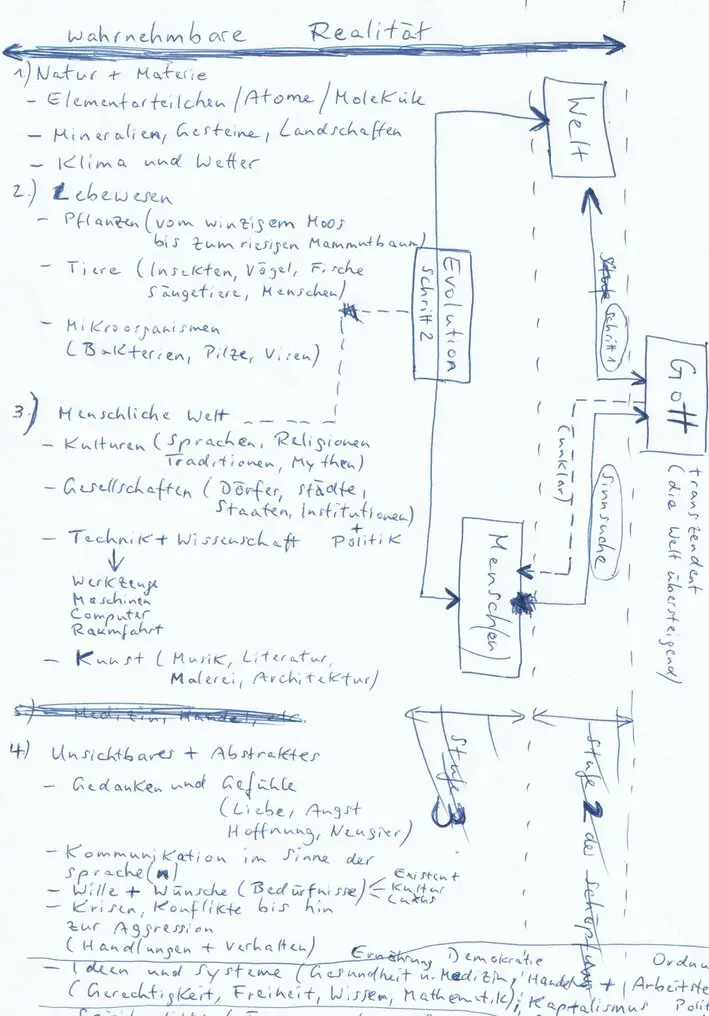 wahrnehmbare Realität
1.) Natur + Materie
- Elementarteilchen / Atome / Moleküle
- Mineralien, Gesteine, Landschaften
- Klima und Wetter
2.) Lebewesen
- Pflanzen (vom winzigem Moos
bis zum riesigen Mammutbaum)
- Tiere (Insekten, Vögel, Fische
Säugetiere, Menschen)
- Mikroorganismen
(Bakterien, Pilze, Viren)
3.) Menschliche Welt
- Kulturen (Sprachen, Religionen
Traditionen, Mythen)
- Gesellschaften (Dörfer, Städte,
Staaten, Institutionen)
+
- Technik + Wissenschaft Politik
Werkzeuge
Maschinen
Computer
Raumfahrt
- Kunst (Musik, Literatur,
Malerei, Architektur)
5.) - Medizin, Handel, etc.
4) Unsichtbares + Abstraktes
- Gedanken und Gefühle
(Liebe, Angst
Hoffnung, Neugier)
- Kommunikation im Sinne der
Sprache(n)
- Wille + Wünsche (Bedürfnisse)
Existent
Kultur
Luxus
- Krisen, Konflikte bis hin
zur Aggression
(Handlungen + Verhalten)
Ernährung Demokratie Ordnu
- Ideen und Systeme (Gesundheit u. Medizin, Handel + Arbeitste
(Gerechtigkeit, Freiheit, Wissen, Mathematik); Kapitalismus Polit
Welt
Stufe Schritt 1
Evolution
Schritt 2
Gott
transzendent
(die Welt übersteigend)
(unklar)
Sinnsuche
Mensch(en)
Stufe 3
Stufe 2 der Schöpfung